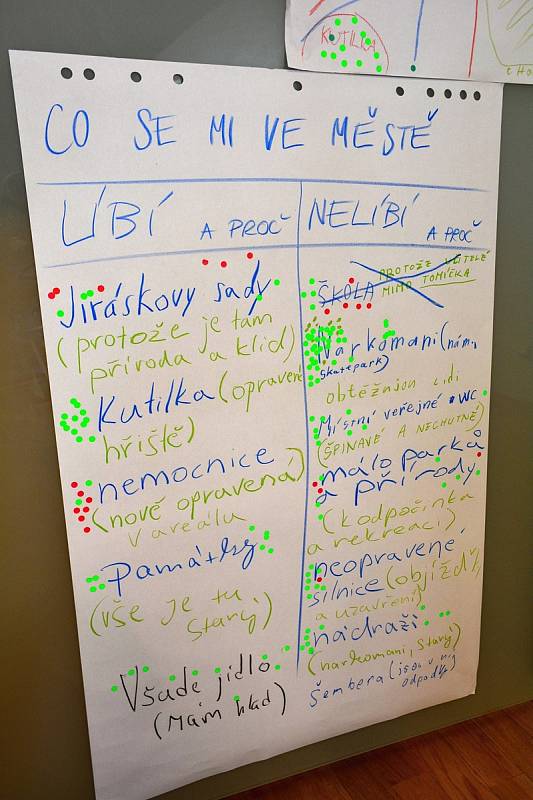 KUTILKA
CO SE MI VE MĚSTĚ
LÍBÍ A PROČ
Jiráskovy sady
(protože je tam
příroda a klid)
Kutilka (opravené
hřiště)
nemocnice
(nově opravená)
v areálu
Památky
(vše je tu
starý)
Všude jídlo
(Mám hlad)
NELÍBÍ A PROČ
ŠKOLA PROTOŽE UČITELÉ
MIMO TOMÍČKA
Narkomani (nám.,
skatepark)
obtěžujou lidi
Místní veřejné WC
(ŠPINAVÉ A NECHUTNÉ)
málo parků
a přírody
(k odpočinku
a rekreaci)
neopravené
silnice (objížďky,
a uzavření)
nádraží
(narkomani, starý)
Šembera (jsou v něj
odpadky)